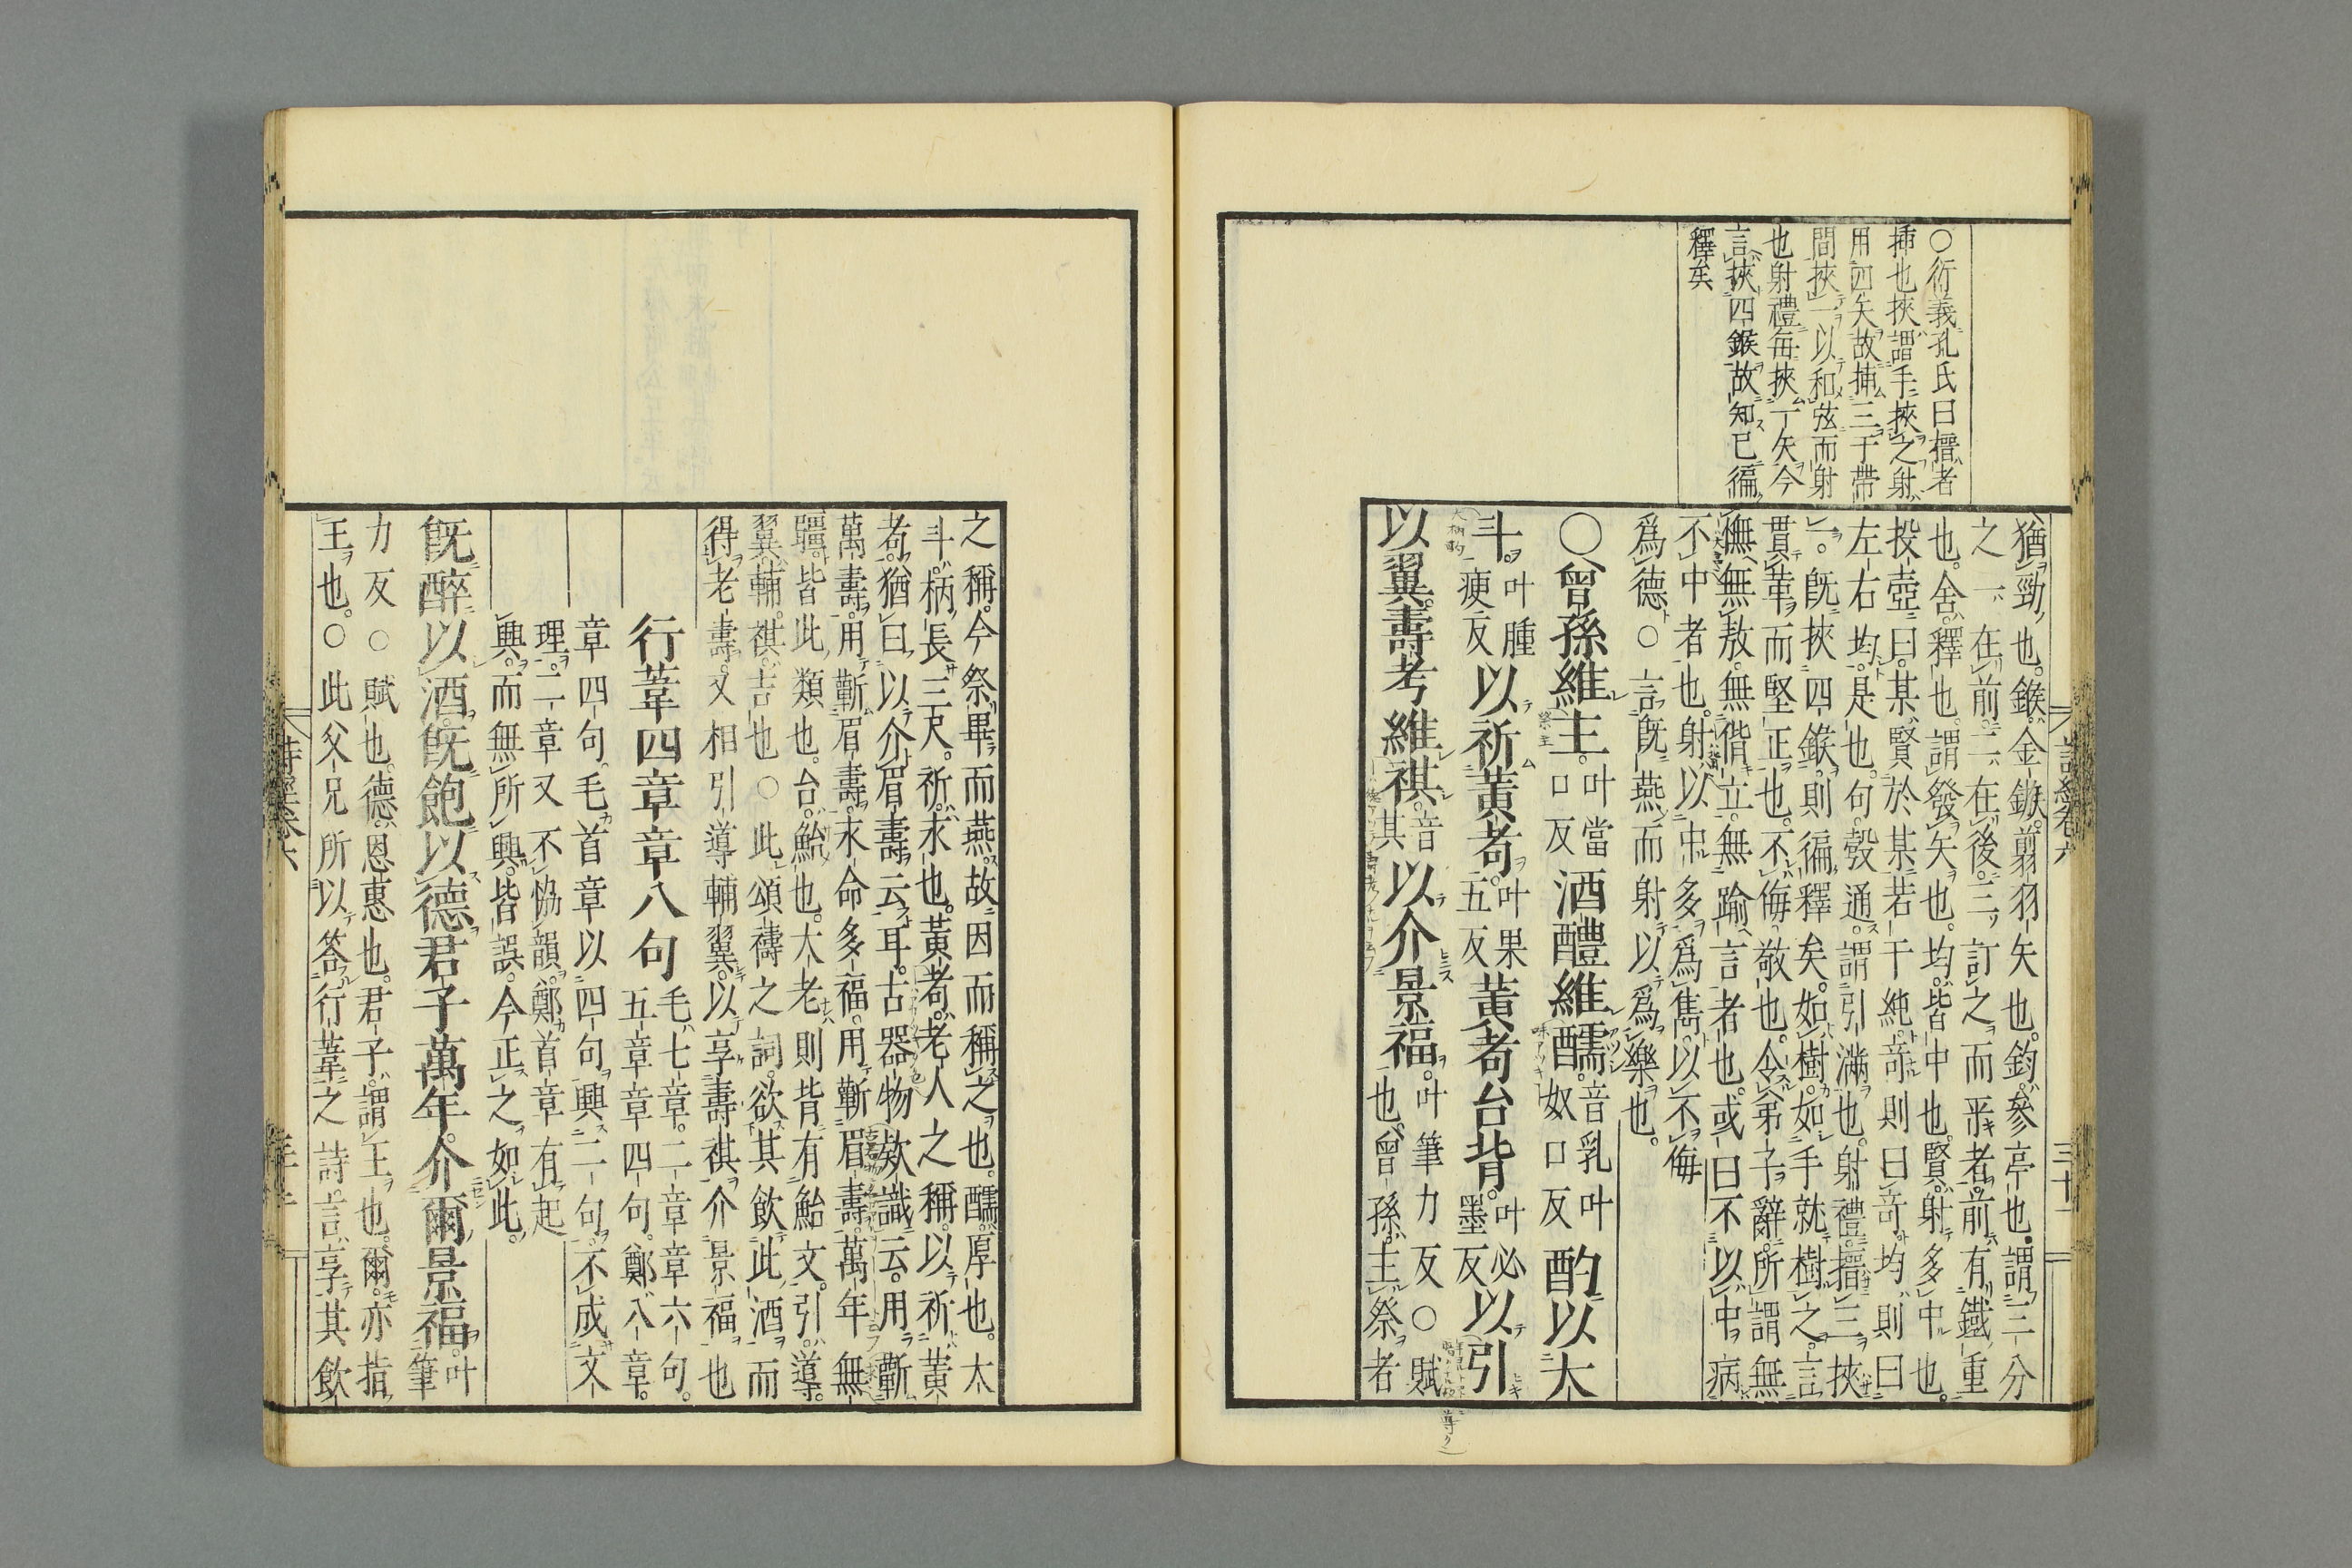 詩經卷六
三十一
○衍義孔氏曰搢者
揷也挾謂手挾之射
用四矢故揷三于帶
間挾一以和弦而射
也射禮每挾一矢今
言挾四鍭故知已徧
釋矣
猶勁也。鍭。金鏃。翦羽矢也。鈞。參亭也。謂三分
之一在前。二在後。三訂之而平者。前有鐵重
也。舍。釋也。謂發矢也。均。皆中也。賢。射多中也。
投壺曰。某賢於某若干純。奇則曰奇。均則曰
左右均。是也。句。彀通。謂引滿也。射禮。搢三挾
一。旣挾四鍭。則徧釋矣。如樹。如手就樹之。言
貫革而堅正也。不侮。敬也。令弟子辭。所謂無
憮。無敖。無偝立。無踰言者也。或曰不以中病
不中者也。射以中多爲雋。以不侮
爲德○言旣燕而射。以爲樂也。
○曾孫維主。叶當口反酒醴維醹。音乳叶奴口反酌以大
斗。叶腫庾反以祈黃耇。叶果五反黃耇台背。叶必墨反以引
以翼。壽考維祺。音其以介景福。叶筆力反○賦也。曾孫。主祭者
之稱。今祭畢而燕。故因而稱之也。醹。厚也。大
斗。柄長三尺。祈。求也。黃耇。老人之稱。以祈黃
耇。猶曰以介眉壽云耳。古器物欵識云。用蘄
萬壽。用蘄眉壽。永命多福。用蘄眉壽。萬年無
疆。皆此類也。台。鮐也。大老則背有鮐文。引。導。
翼。輔。祺。吉也○此頌禱之詞。欲其飲此酒而
得老壽。又相引導輔翼。以享壽祺介景福也
行葦四章章八句毛七章。二章章六句。五章章四句。鄭八章。
章四句。毛首章以四句興二句。不成文
理。二章又不恊韻。鄭首章有起
興。而無所興。皆誤。今正之如此。
旣醉以酒。旣飽以德。君子萬年。介爾景福。叶筆
力反○賦也。德。恩惠也。君子。謂王也。爾。亦指
王也。○此父兄所以答行葦之詩。言享其飲
詩經卷六